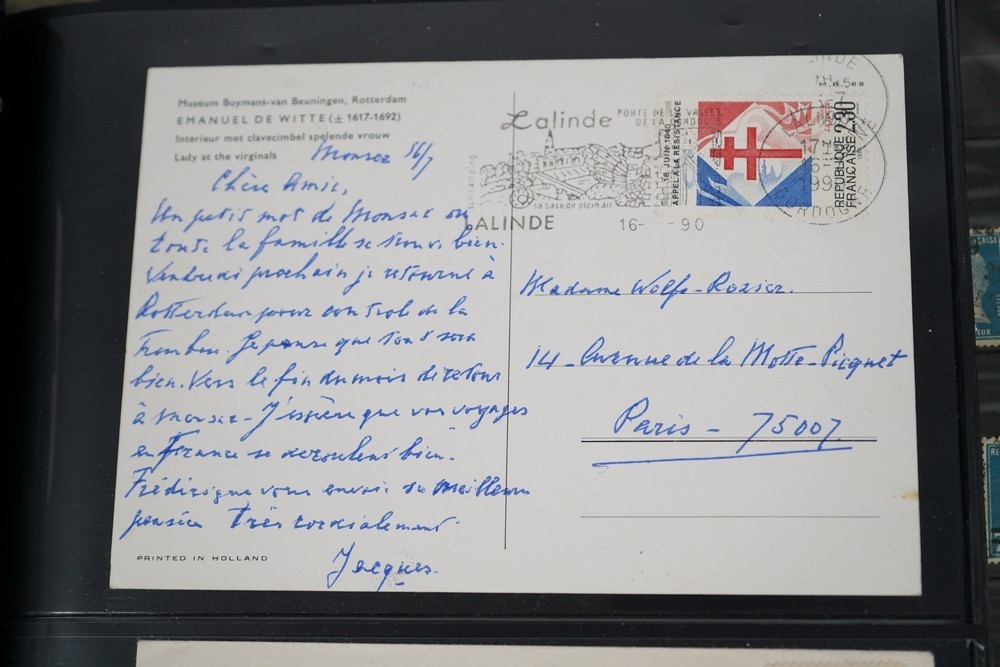 Museum Boymans-van Beuningen, Rotterdam
EMANUEL DE WITTE (± 1617-1692)
Interieur met clavecimbel spelende vrouw
Lady at the virginals
Monsac 16/7
Chère Amie,
Un petit mot de Monsac où
toute la famille se trouve bien.
Vendredi prochain je retourne à
Rotterdam pour control de la
Je pense que tout sera
bien. Vers le fin du mois de retour
à Monsac - J'espère que vos voyages
en France se déroulent bien.
Frédérique vous envoie se meilleures
pensées Très cordialement
Jacques.
PRINTED IN HOLLAND
Lalinde PORTE DE LA VALLÉE
DE LA DORDOGNE
sa base de plein air
LALINDE
16- -90
18 JUIN 1940
APPEL A LA RESISTANCE
REPUBLIQUE
FRANÇAISE 2,30
DORDOGNE
Madame Wolfe-Rozier.
14 - Avenue de la Motte-Picquet
Paris - 75007